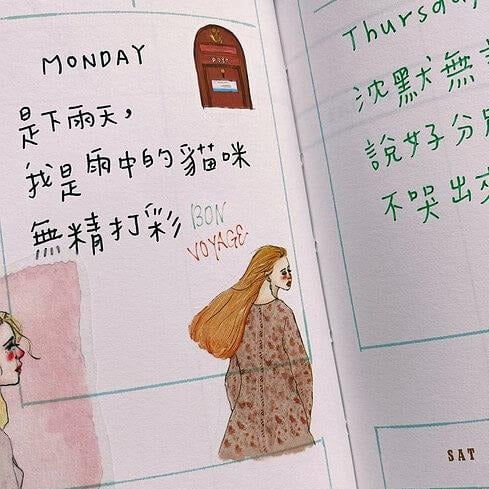 MONDAY
POST
是下雨天,
我是雨中的貓咪
無精打彩
BON
VOYAGE
Thursday
沈默無言
說好分別
不哭出來
SAT